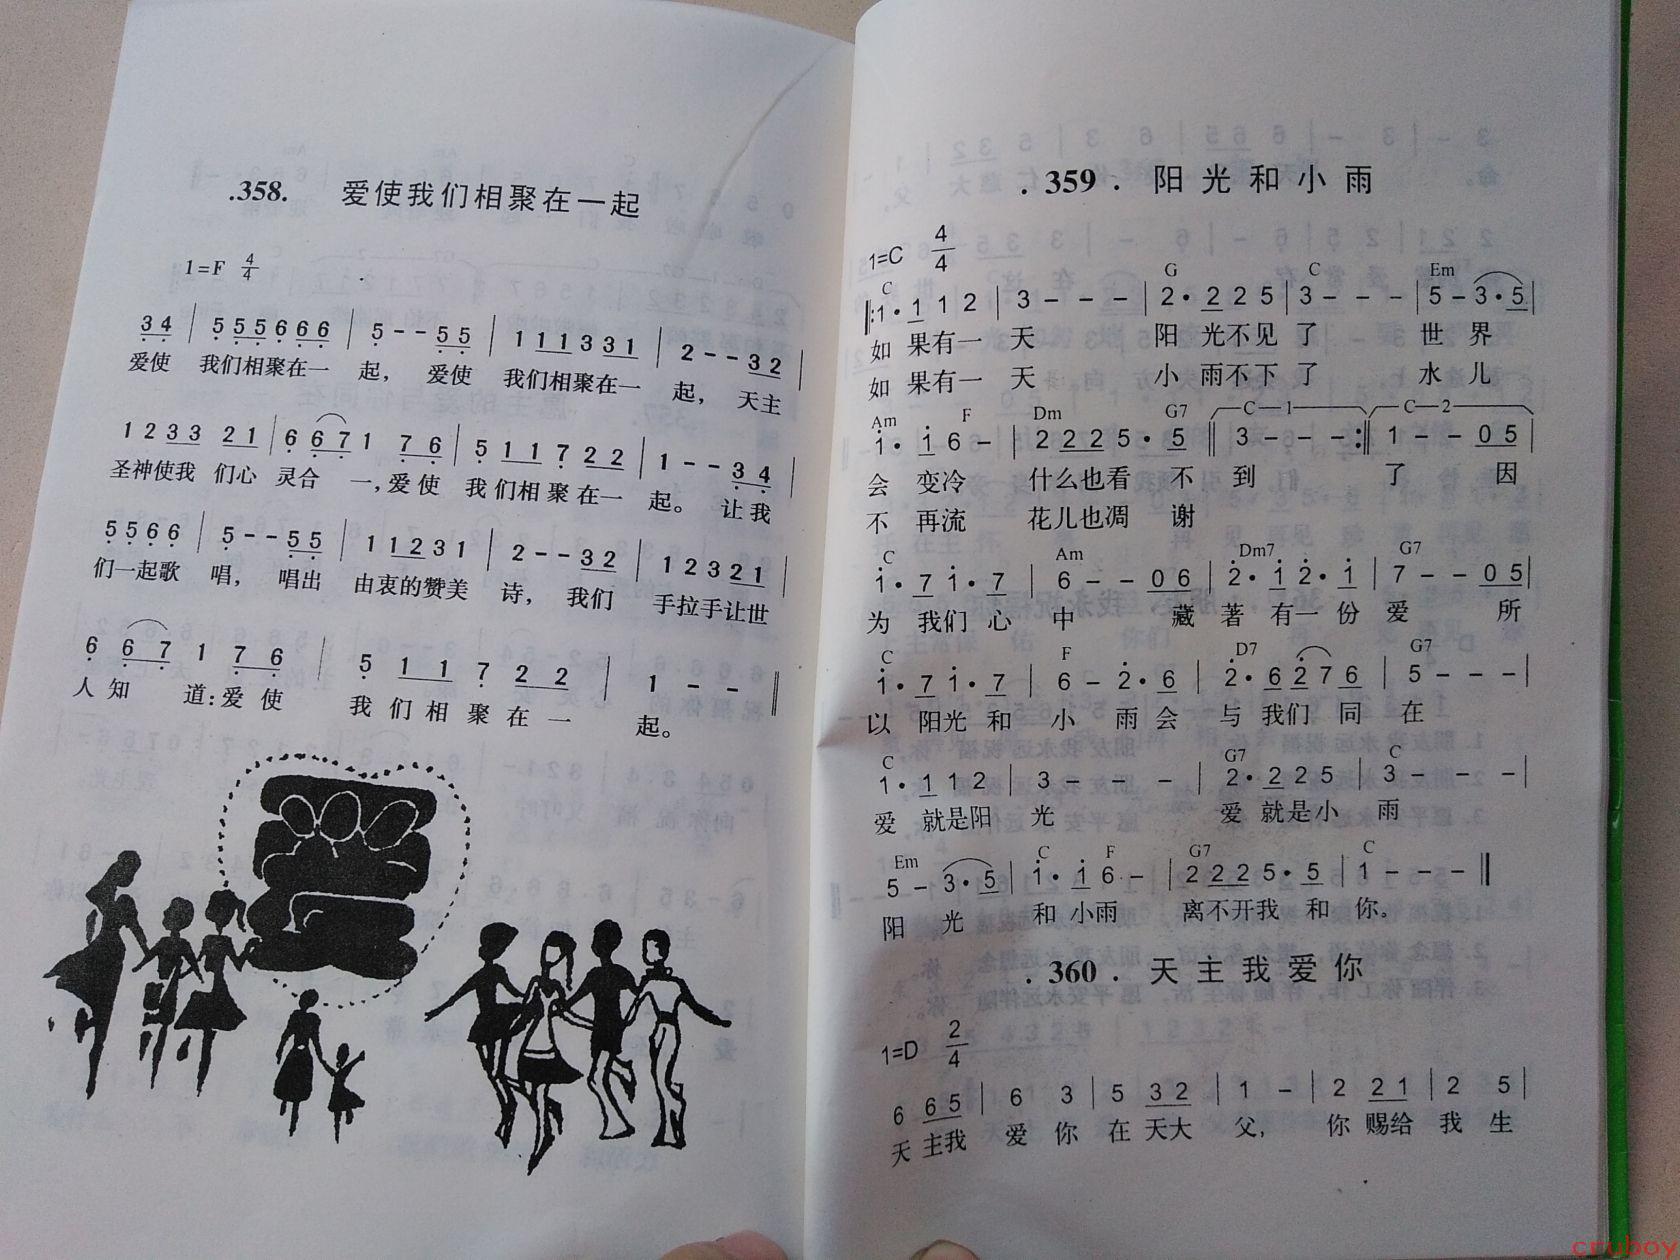 .358. 爱使我们相聚在一起
1=F 4/4
3 4 | 5 5 5 6 6 6 | 5 - - 5 5 | 1 1 1 3 3 1 | 2 - - 3 2 |
爱使 我们相聚在一 起, 爱使 我们相聚在一 起, 天主
1 2 3 3 2 1 | 6 6 7 1 7 6 | 5 1 1 7 2 2 | 1 - - 3 4 |
圣神使我 们心 灵合 一,爱使 我们相聚在一 起。 让我
5 5 6 6 | 5 - - 5 5 | 1 1 2 3 1 | 2 - - 3 2 | 1 2 3 2 1 |
们一起歌 唱, 唱出 由衷的赞美 诗, 我们 手拉手让世
6 6 7 1 7 6 | 5 1 1 7 2 2 | 1 - - ‖
人知 道:爱使 我们相聚在一 起。
.359. 阳光和小雨
1=C 4/4
C G C Em
‖: 1· 1 1 2 | 3 - - - | 2· 2 2 5 | 3 - - - | 5 - 3· 5 |
如 果有一 天 阳 光不见 了 世 界
如 果有一 天 小 雨不下 了 水 儿
Am F Dm G7 C-1 C-2
1· 1 6 - | 2 2 2 5· 5 ‖ 3 - - - :‖ 1 - - 0 5 |
会 变冷 什么也看 不 到 了 因
不 再流 花儿也凋 谢
C Am Dm7 G7
1· 7 1· 7 | 6 - - 0 6 | 2· 1 2· 1 | 7 - - 0 5 |
为 我们 心 中 藏 著 有一 份 爱 所
C F D7 G7
1· 7 1· 7 | 6 - 2· 6 | 2· 6 2 7 6 | 5 - - - |
以 阳光 和 小 雨会 与 我们 同 在
C G7 C
1· 1 1 2 | 3 - - - | 2· 2 2 5 | 3 - - - |
爱 就是阳 光 爱 就是小 雨
Em C F G7 C
5 - 3· 5 | 1· 1 6 - | 2 2 2 5· 5 | 1 - - - ‖
阳 光 和 小雨 离不开我 和 你。
.360. 天主我爱你
1=D 2/4
6 6 5 | 6 3 | 5 3 2 | 1 - | 2 2 1 | 2 5 |
天 主我 爱 你 在 天大 父, 你 赐给 我 生
cruboy